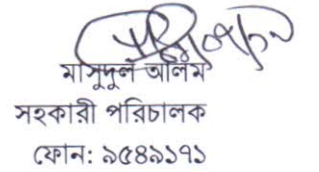 মাসুদুল আলম
সহকারী পরিচালক
ফোন: ৯৫৪৯১৭১